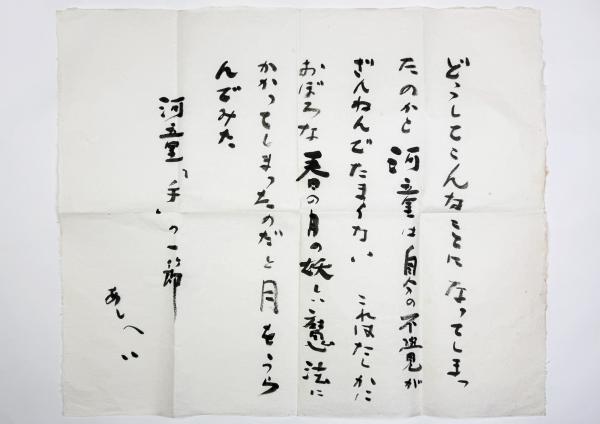 どうしてこんなことになってしまっ
たのかと 河童は自分の不覚が
ざんねんでたまらない これはたしかに
おぼろな春の月の妖しい魔法に
かかってしまったのだと月をうら
んでみた
河童「手」の一節
あしへい